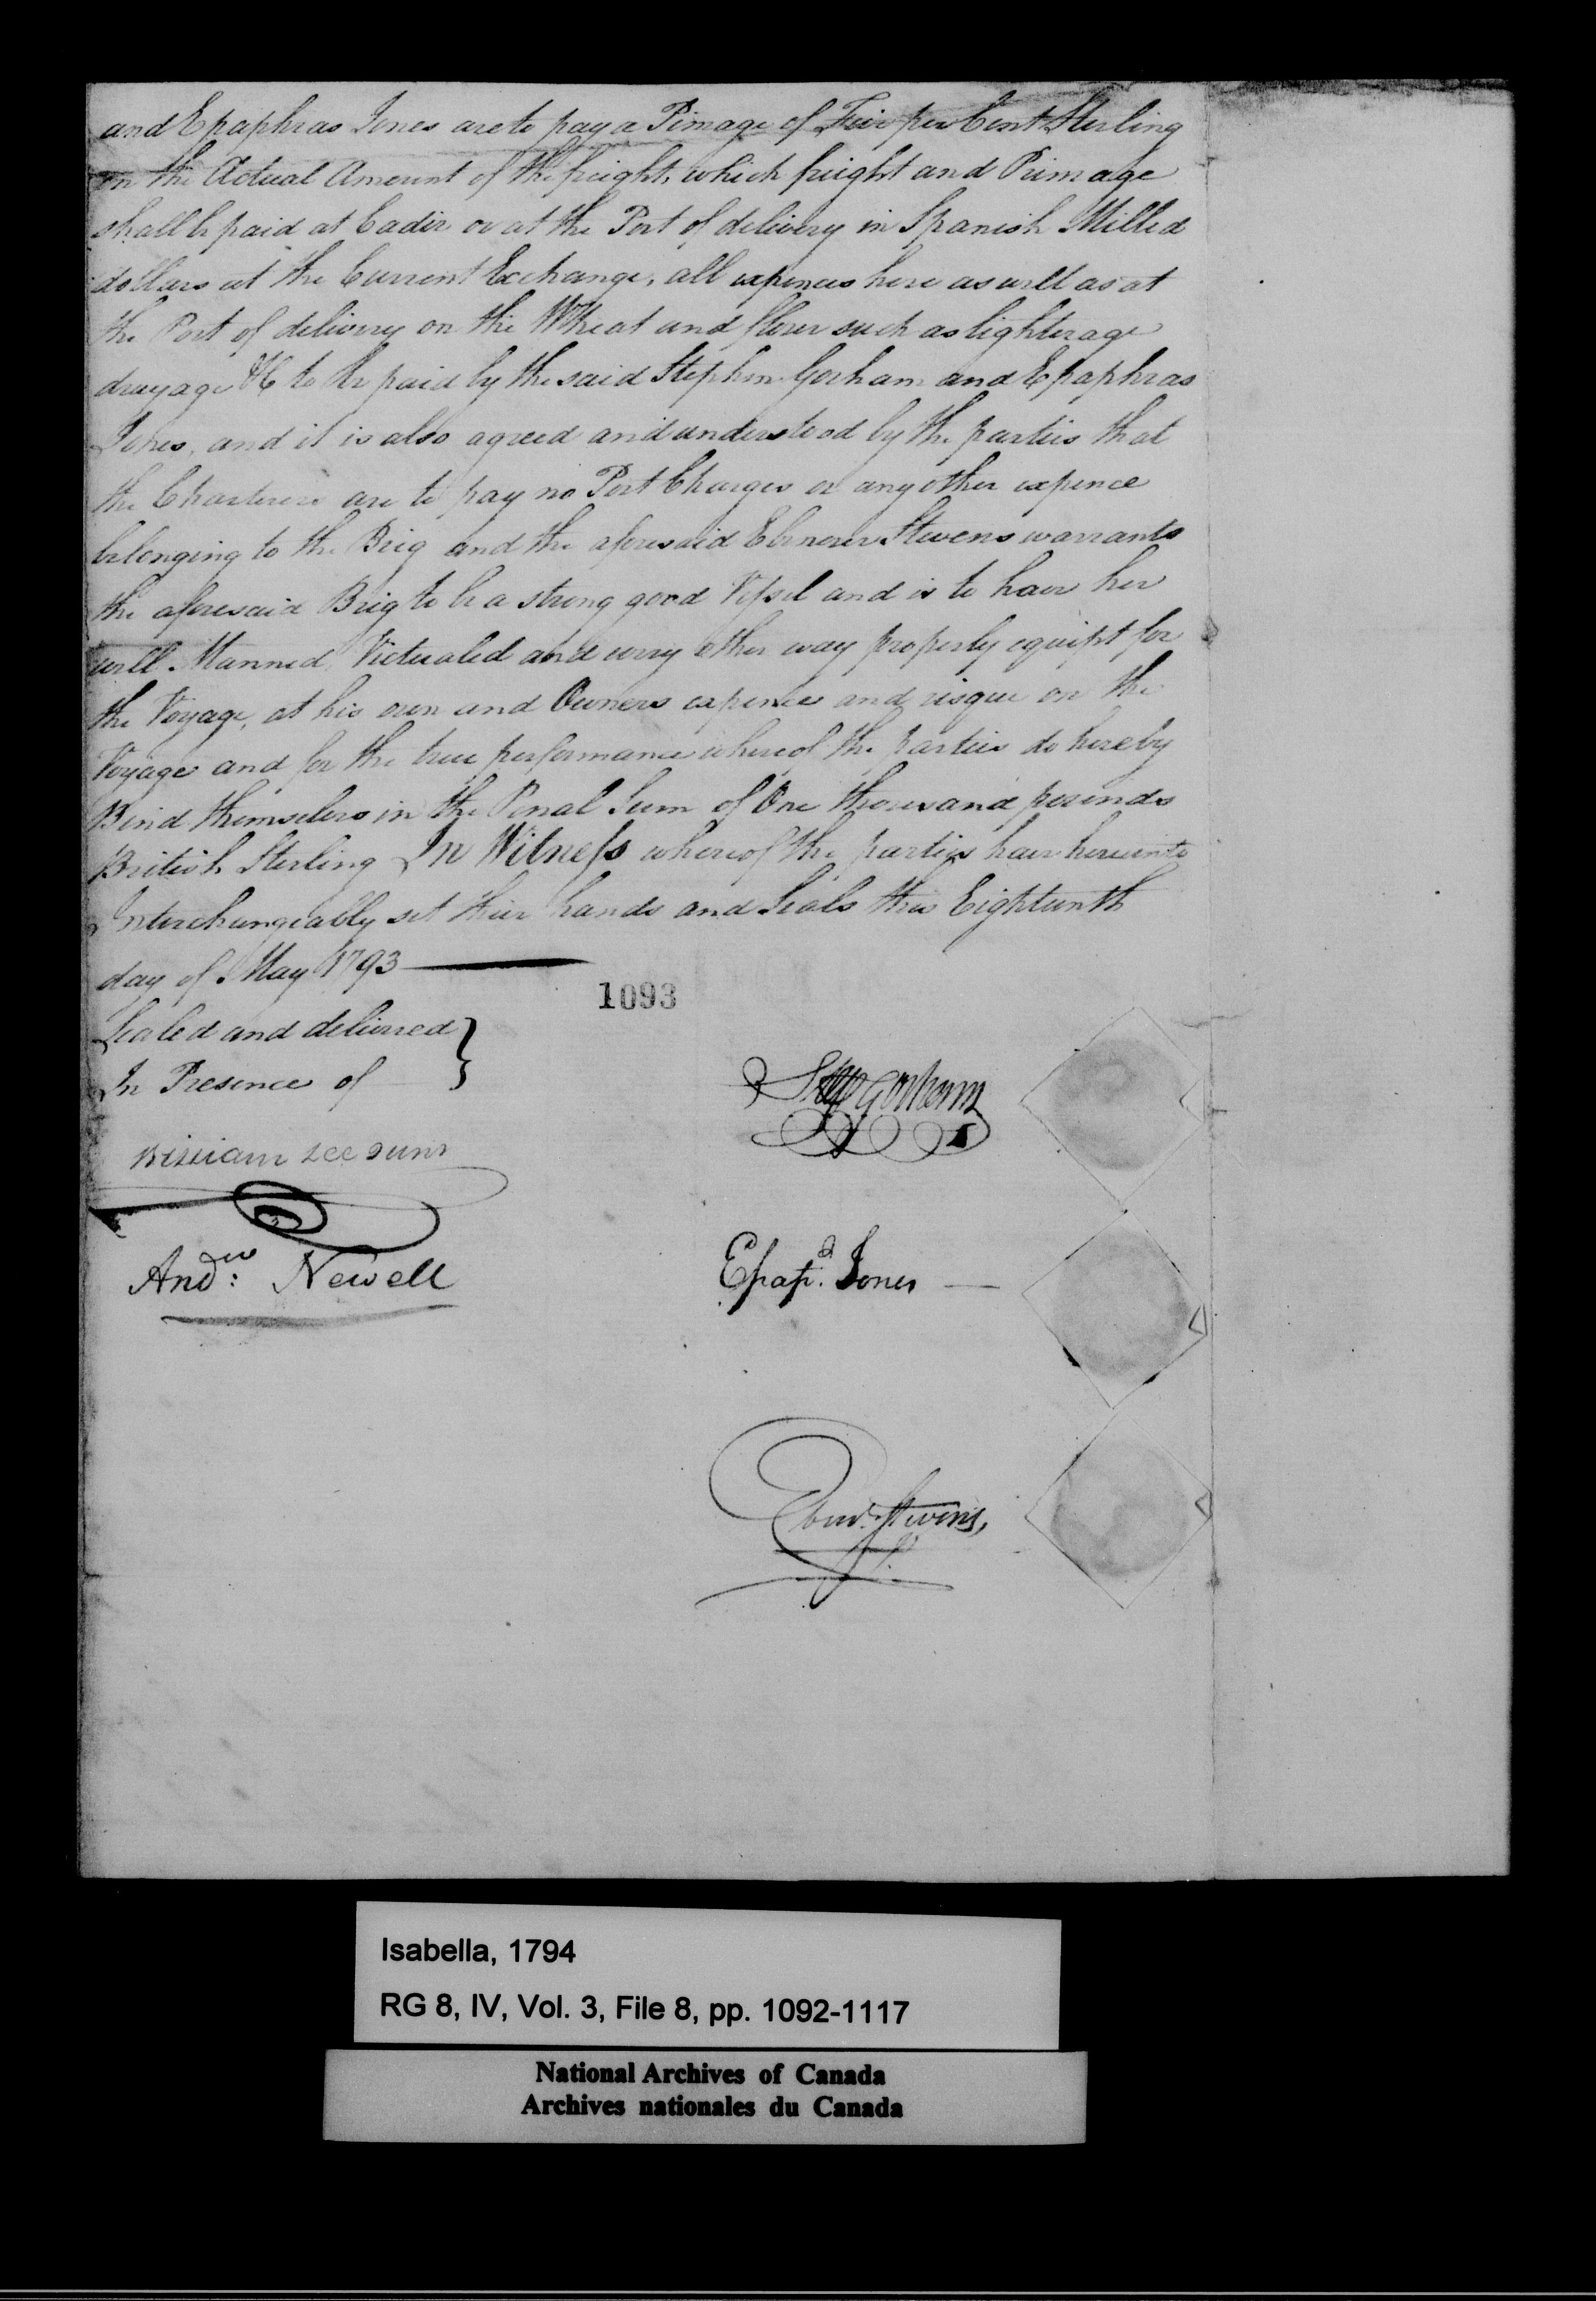 and Epaphras Jones are to pay a Primage of Five per Cent Sterling
on the Actual Amount of the freight, which freight and Primage
shall be paid at Cadiz or at the Port of delivery in Spanish Milled
dollars at the Current Exchange, all expences here as well as at
the Port of delivery on the Wheat and flour such as lighterage
drayage &c to be paid by the said Stephen Gorham and Epaphras
Jones, and it is also agreed and understood by the parties that
the Charterers are to pay no Port Charges or any other expence
belonging to the Brig and the aforesaid Ebenezer Stevens warrants
the aforesaid Brig to be a strong good Vessel and is to have her
well Manned, Victualed and every other way properly equipt for
the Voyage, at his own and Owners expence and risque on the
Voyage and for the true performance whereof the parties do hereby
Bind themselves in the Penal Sum of One thousand pounds
British Sterling In Witness whereof the parties have hereunto
Interchangeably set their hands and Seals this Eighteenth
day of May 1793
1093
Sealed and delivered
In Presence of
Step Gorham
William Lee Junr
Andw: Newell
Epaps. Jones
Ebenr. Stevens,
Isabella, 1794
RG 8, IV, Vol. 3, File 8, pp. 1092-1117
National Archives of Canada
Archives nationales du Canada